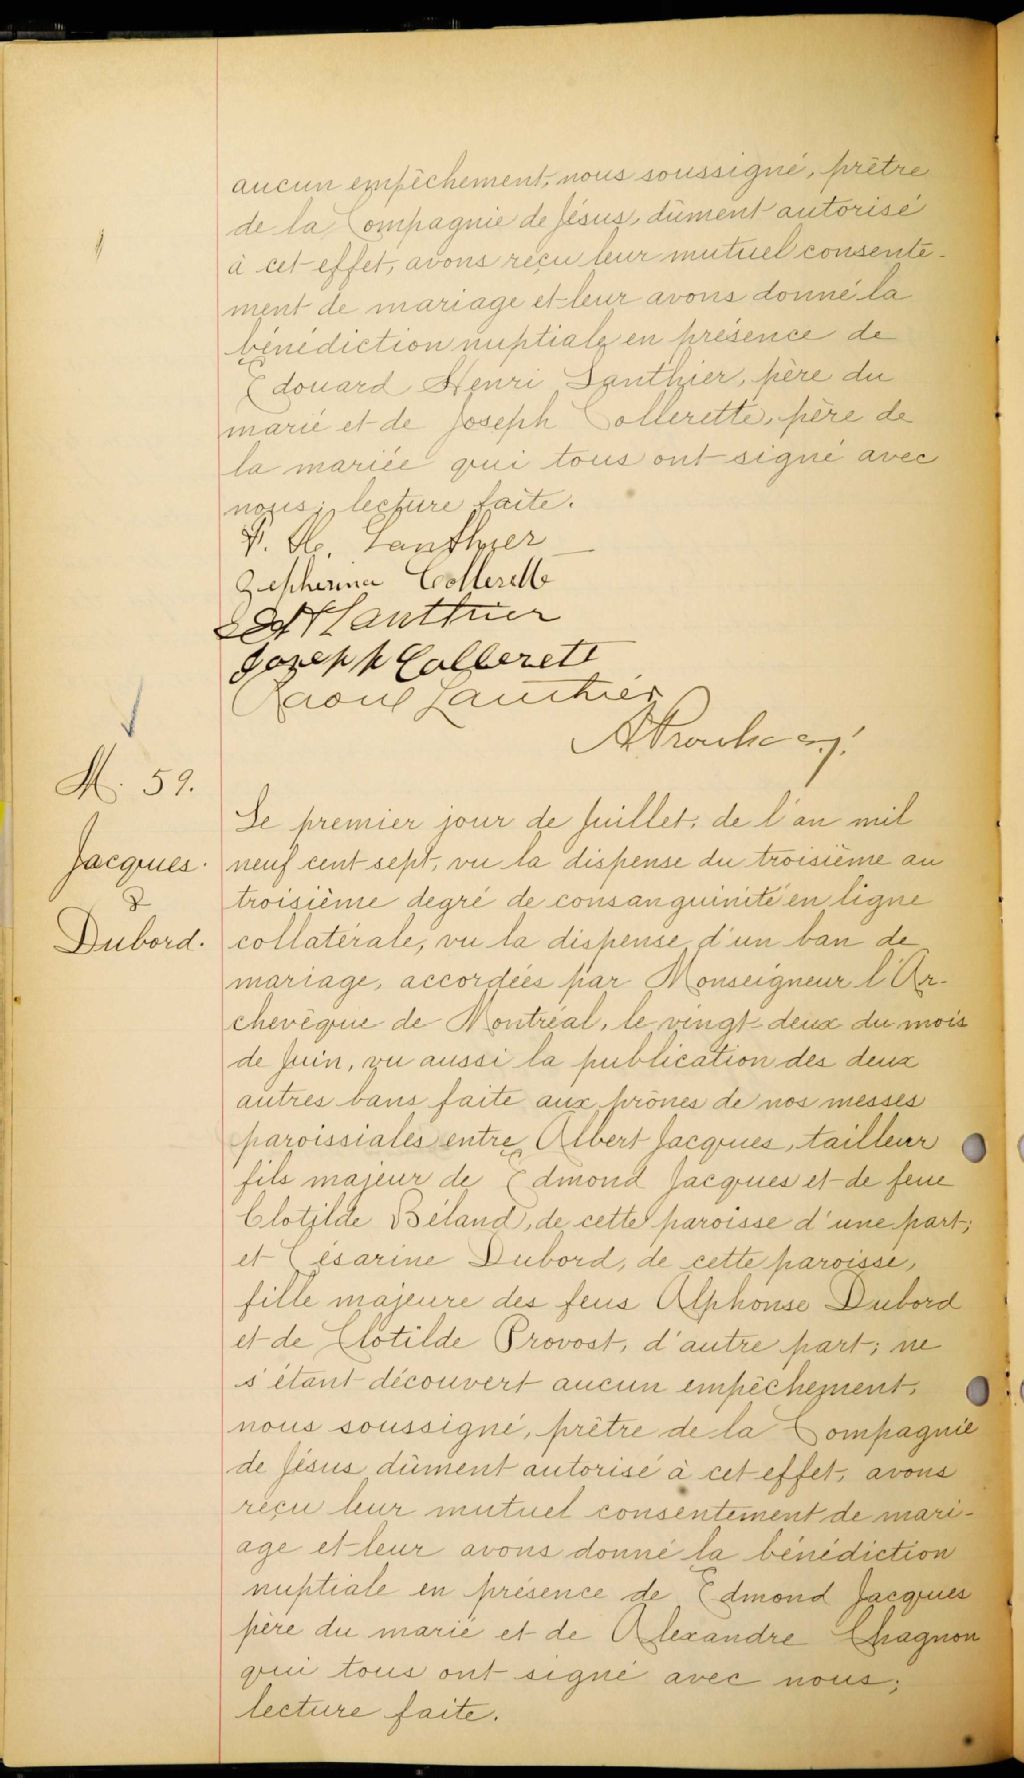 aucun empêchement, nous soussigné, prêtre
de la Compagnie de Jésus, dûment autorisé
à cet effet, avons reçu leur mutuel consente-
ment de mariage et leur avons donné la
bénédiction nuptiale en présence de
Edouard Henri Lanthier, père du
marié et de Joseph Collerette, père de
la mariée qui tous ont signé avec
nous; lecture faite.
F. H. Lanthier
Zepherina Collerette
Ed H Lanthier
Joseph Collerette
Raoul Lanthier
s.j.
M. 59.
Jacques.
&
Dubord.
Le premier jour de Juillet, de l'an mil
neuf cent sept, vu la dispense du troisième au
troisième degré de consanguinité en ligne
collatérale, vu la dispense d'un ban de
mariage, accordées par Monseigneur l'Ar-
chevêque de Montréal, le vingt-deux du mois
de Juin, vu aussi la publication des deux
autres bans faite aux prônes de nos messes
paroissiales entre Albert Jacques, tailleur
fils majeur de Edmond Jacques et de feue
Clotilde Béland, de cette paroisse d'une part;
et Césarine Dubord, de cette paroisse,
fille majeure des feus Alphonse Dubord
et de Clotilde Provost, d'autre part; ne
s'étant découvert aucun empêchement,
nous soussigné, prêtre de la Compagnie
de Jésus dûment autorisé à cet effet, avons
reçu leur mutuel consentement de mari-
age et leur avons donné la bénédiction
nuptiale en présence de Edmond Jacques
père du marié et de Alexandre Chagnon
qui tous ont signé avec nous;
lecture faite.